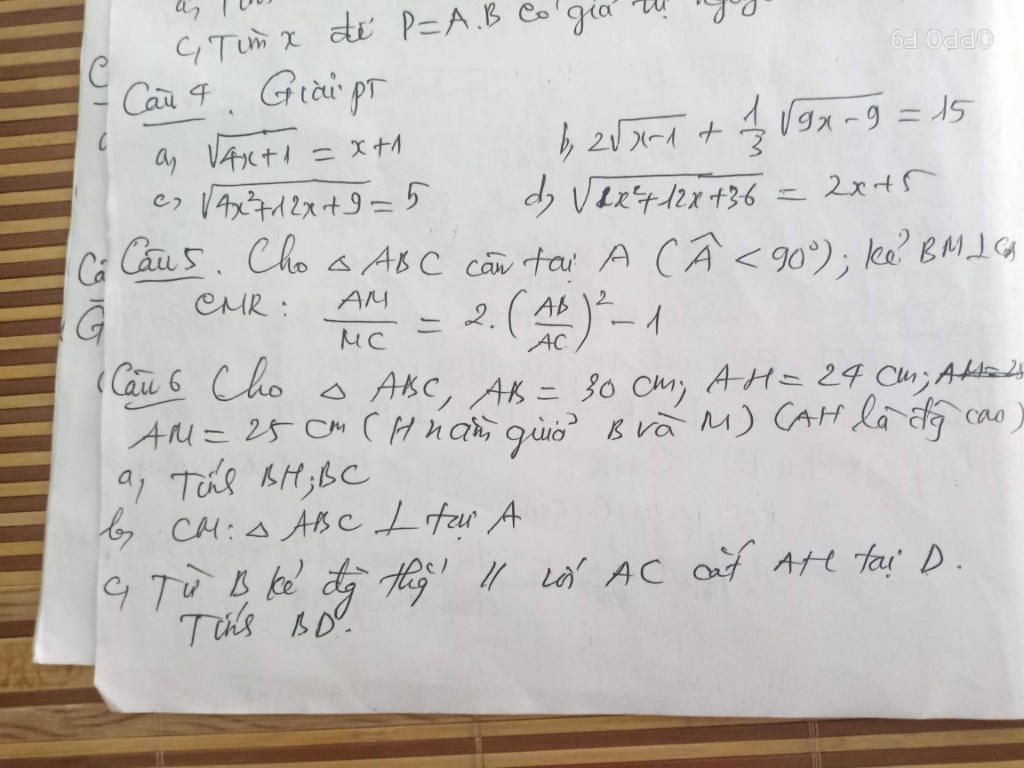 c, Tìm x để P=A.B có giá trị
Câu 4. Giải pT
a, √(4x+1) = x+1 b, 2√(x-1) + 1/3 √(9x-9) = 15
c, √(4x²+12x+9) = 5 d, √(x²+12x+36) = 2x+5
Câu 5. Cho △ ABC cân tại A (Â < 90°); kẻ BM⊥
CMR: AM/MC = 2.(AB/AC)² - 1
Câu 6 Cho △ ABC, AB = 30 cm; AH = 24 cm;
AM = 25 cm (H nằm giữa B và M) (AH là đg cao)
a, Tính BH; BC
b, CM: △ ABC ⊥ tại A
c, Từ B kẻ đg thg // với AC cắt AH tại D.
Tính BD.
OPPO F9